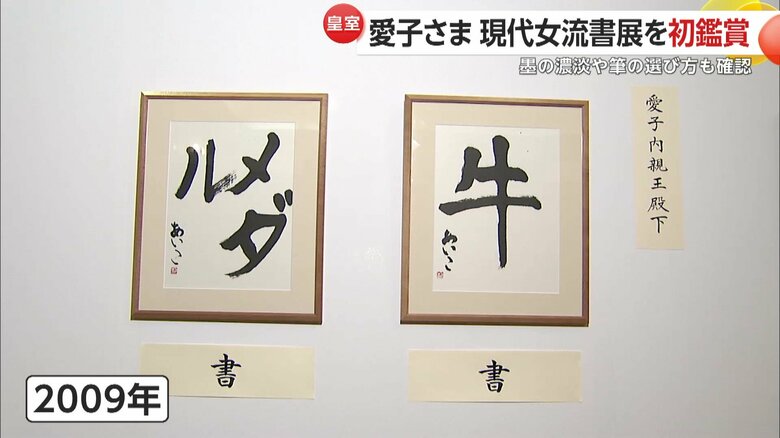 皇室
愛子さま 現代女流書展を初鑑賞
墨の濃淡や筆の選び方も確認
愛子内親王殿下
牛
あいこ
書
メダ
ル
あいこ
書
2009年